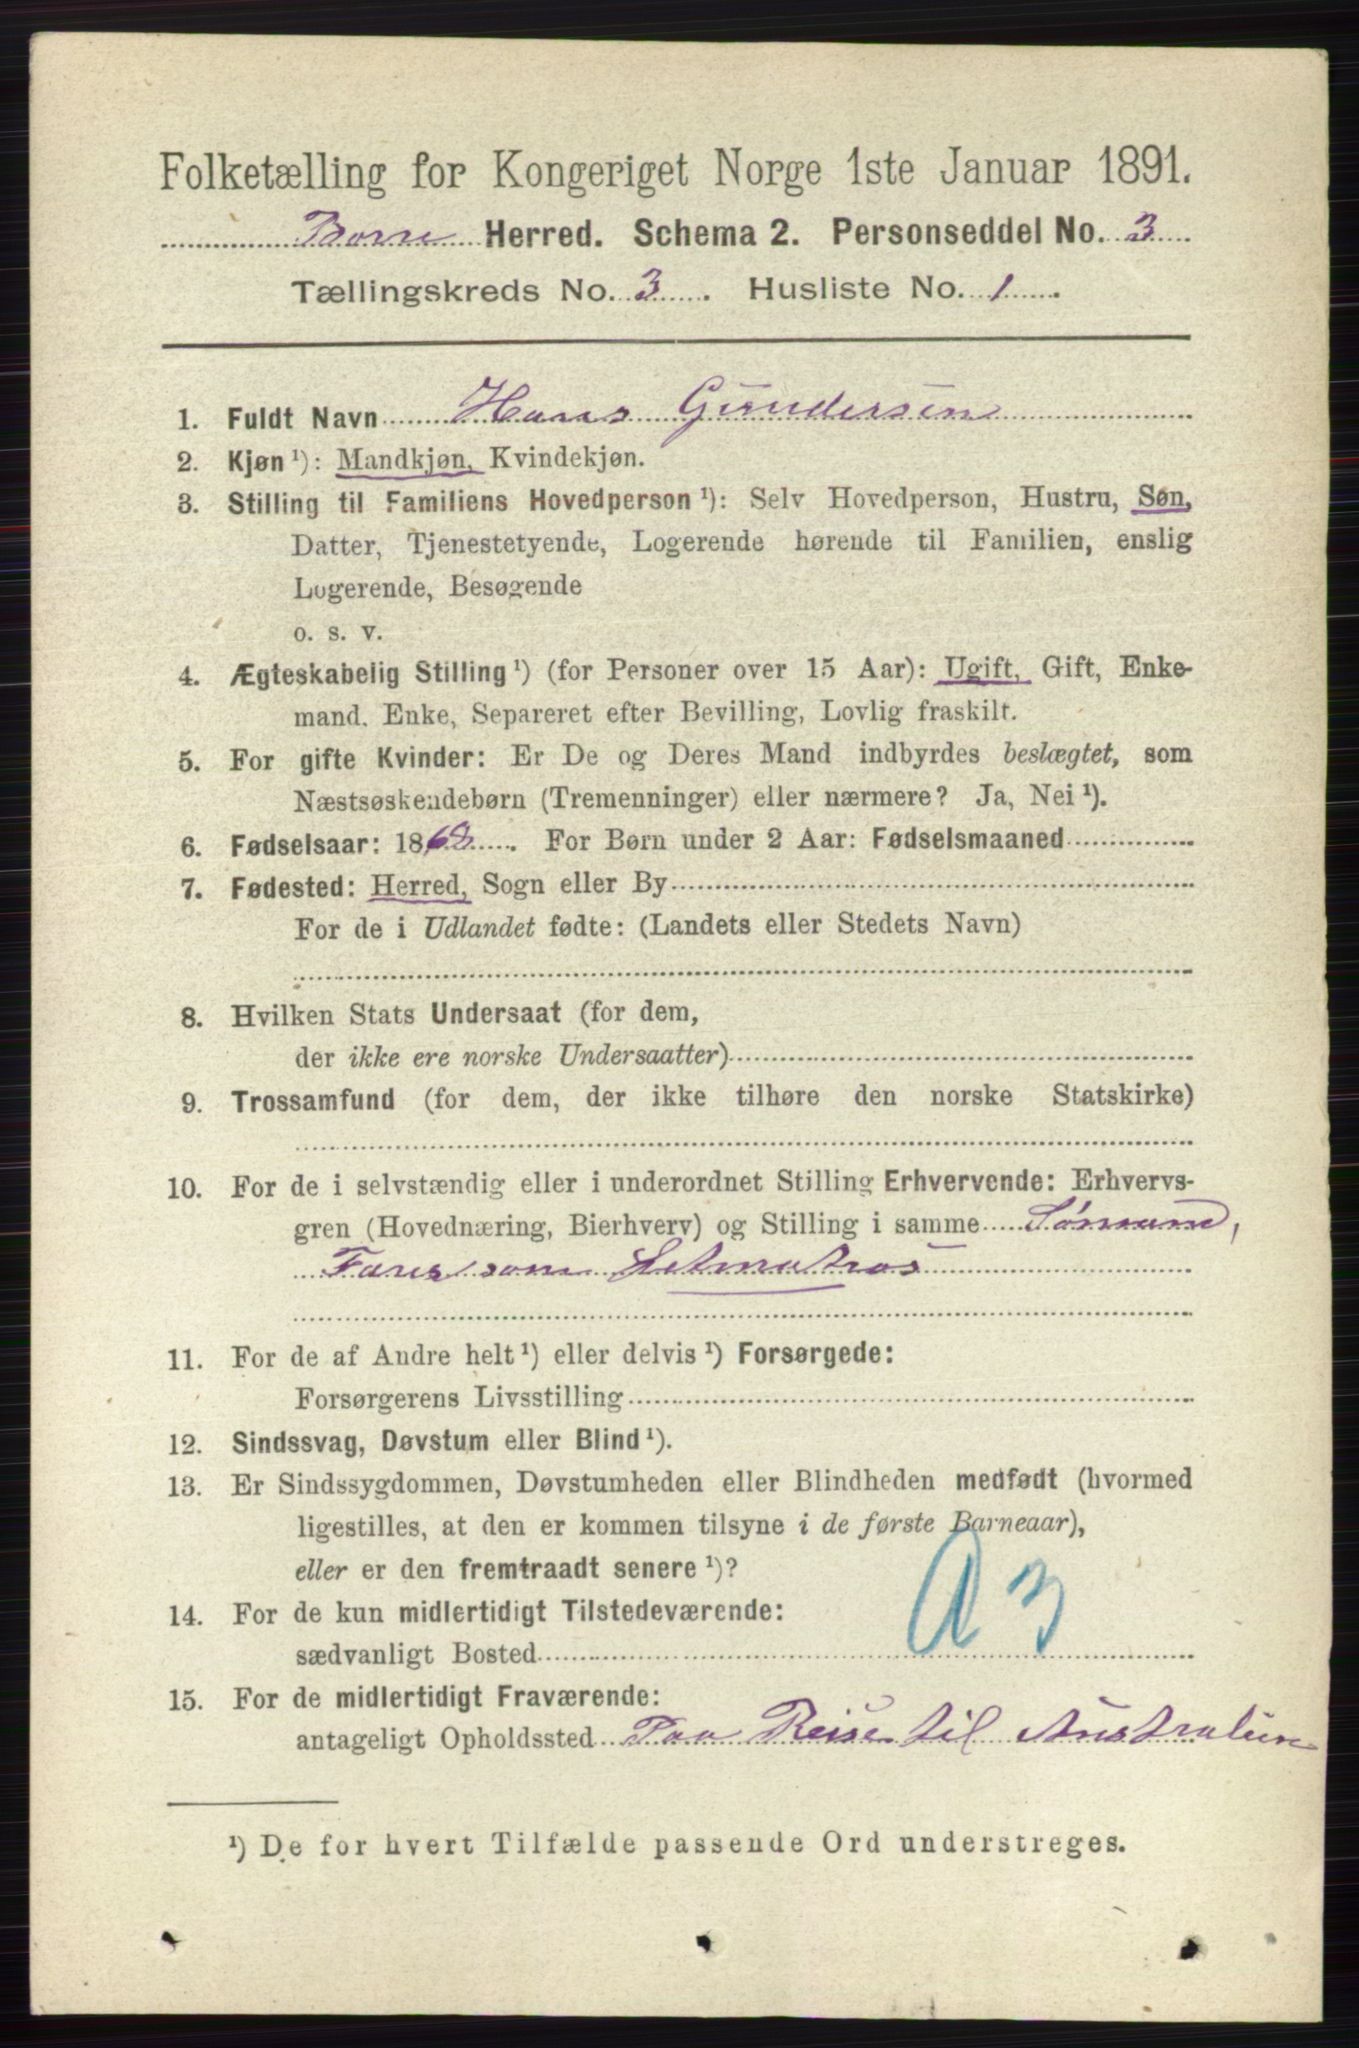 Folketælling for Kongeriget Norge 1ste Januar 1891.
Borre Herred. Schema 2. Personseddel No. 3
Tællingskreds No. 3. Husliste No. 1.
1. Fuldt Navn Hans Gundersen
2. Kjøn ¹): Mandkjøn, Kvindekjøn.
3. Stilling til Familiens Hovedperson ¹): Selv Hovedperson, Hustru, Søn,
Datter, Tjenestetyende, Logerende hørende til Familien, enslig
Logerende, Besøgende
o. s. v.
4. Ægteskabelig Stilling ¹) (for Personer over 15 Aar): Ugift, Gift, Enke-
mand, Enke, Separeret efter Bevilling, Lovlig fraskilt.
5. For gifte Kvinder: Er De og Deres Mand indbyrdes beslægtet, som
Næstsøskendebørn (Tremenninger) eller nærmere? Ja, Nei ¹).
6. Fødselsaar: 1868. For Børn under 2 Aar: Fødselsmaaned
7. Fødested: Herred, Sogn eller By
For de i Udlandet fødte: (Landets eller Stedets Navn)
8. Hvilken Stats Undersaat (for dem,
der ikke ere norske Undersaatter)
9. Trossamfund (for dem, der ikke tilhøre den norske Statskirke)
10. For de i selvstændig eller i underordnet Stilling Erhvervende: Erhvervs-
gren (Hovednæring, Bierhverv) og Stilling i samme Sømand,
Farer som Letmatros
11. For de af Andre helt ¹) eller delvis ¹) Forsørgede:
Forsørgerens Livsstilling
12. Sindssvag, Døvstum eller Blind ¹).
13. Er Sindssygdommen, Døvstumheden eller Blindheden medfødt (hvormed
ligestilles, at den er kommen tilsyne i de første Barneaar),
eller er den fremtraadt senere ¹)?
14. For de kun midlertidigt Tilstedeværende:
sædvanligt Bosted
a 3
15. For de midlertidigt Fraværende:
antageligt Opholdssted Paa Reise til Australien
¹) De for hvert Tilfælde passende Ord understreges.